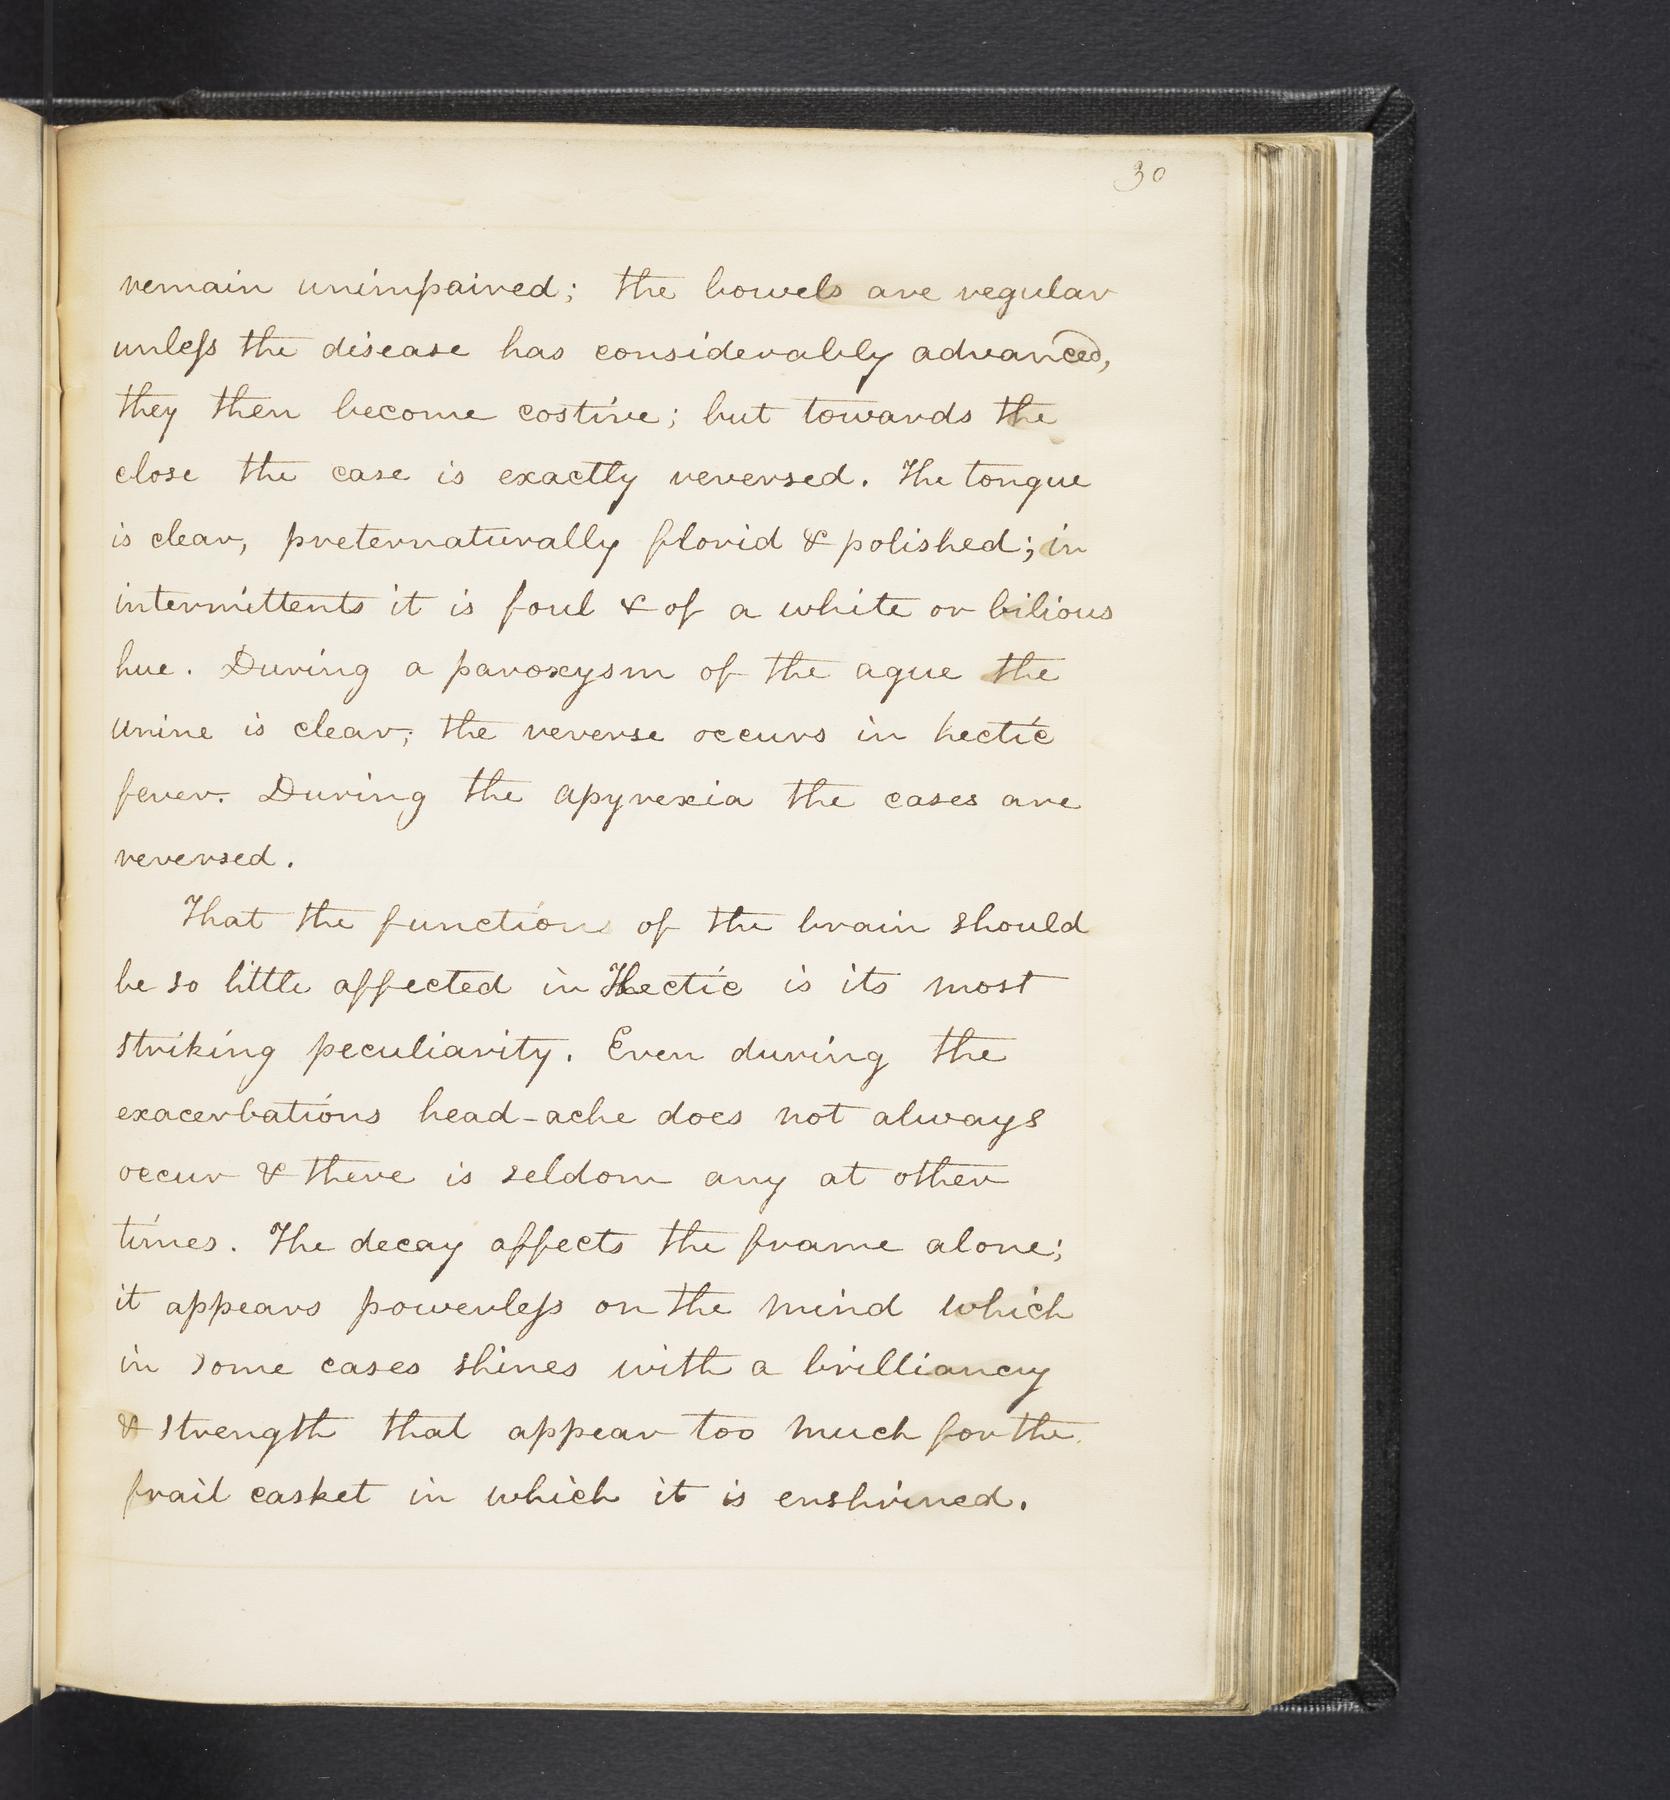 30
remain unimpaired; the bowels are regular
unleſs the disease has considerably advanced,
they then become costive; but towards the
close the case is exactly reversed. The tongue
is clear, preternaturally florid & polished; in
intermittents it is foul & of a white or bilious
hue. During a paroxysm of the ague the
urine is clear; the reverse occurs in hectic
fever. During the apyrexia the cases are
reversed.
That the functions of the brain should
be so little affected in Hectic is its most
striking peculiarity. Even during the
exacerbations head-ache does not always
occur & there is seldom any at other
times. The decay affects the frame alone;
it appears powerleſs on the mind which
in some cases shines with a brilliancy
& strength that appear too much for the
frail casket in which it is enshrined.